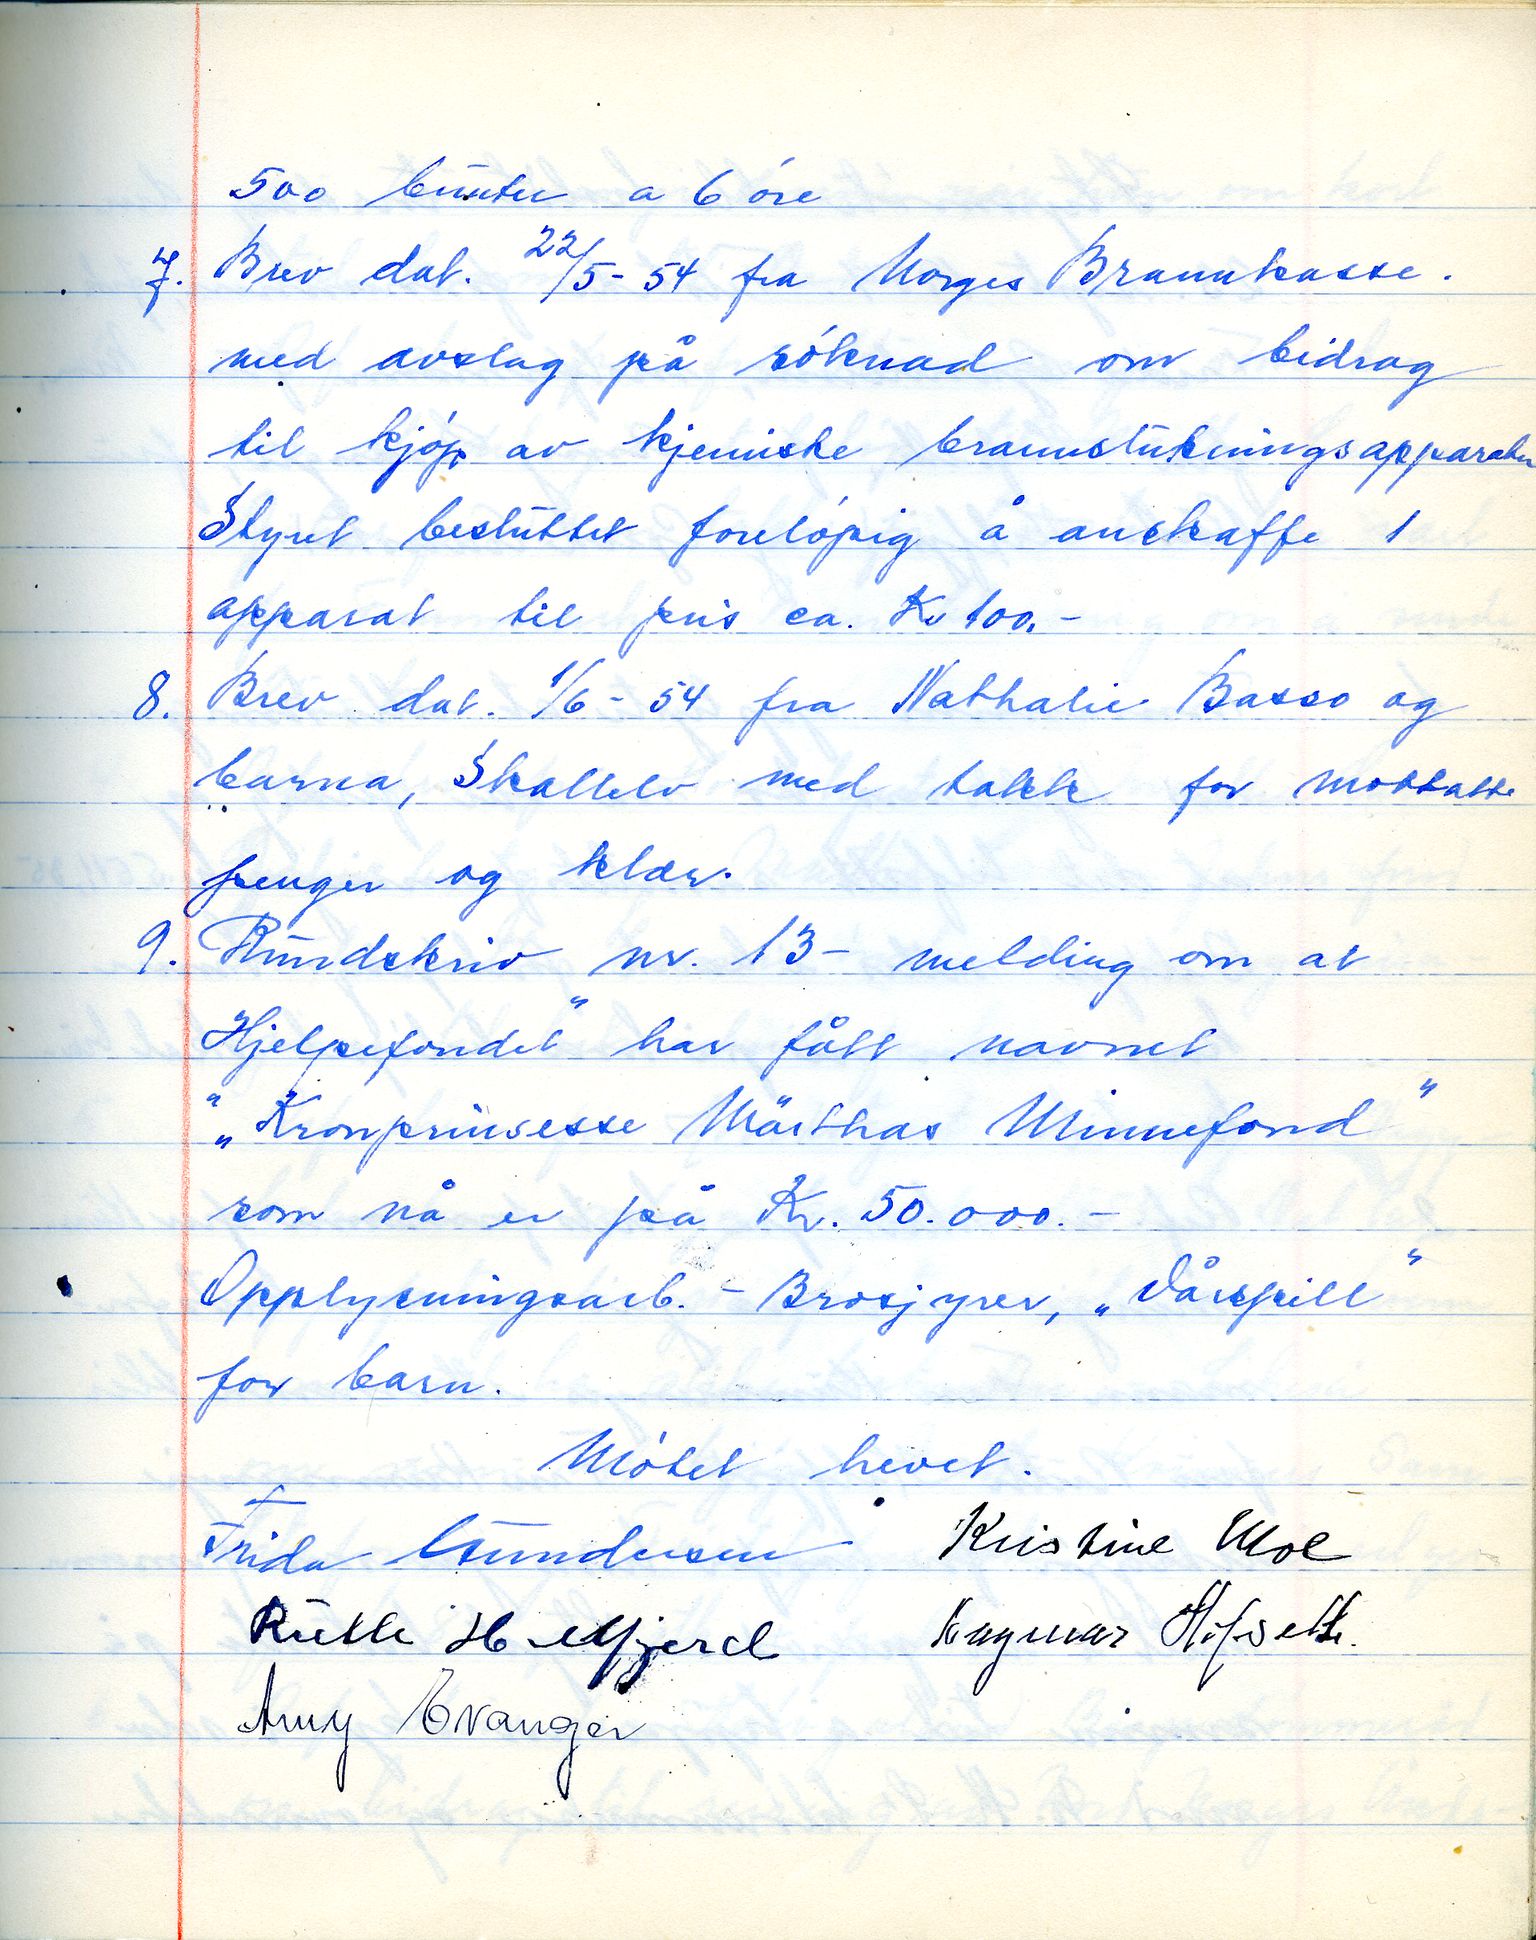 500 bunter a 6 øre
7. Brev dat. 22/5-54 fra Norges Brannkasse.
med avslag på søknad om bidrag
til kjøp av kjemiske brannslukningsapparater
Styret besluttet foreløpig å anskaffe 1
apparat til pris ca. Kr 100.-
8. Brev dat. 1/6-54 fra Nathalie Basso og
barna, Skallelv med takk for mottatte
penger og klær.
9. Rundskriv nr. 13- melding om at
Hjelpefondet" har fått navnet
"„Kronprinsesse Märthas Minnefond"
som nå er på Kr. 50.000.-
Opplysningsarb. - Brosjyrer, „Vårspill"
for barn.
Møtet hevet.
Frida Gundersen Kristine Moe
Ruth H. Dagmar
Amy Evanger